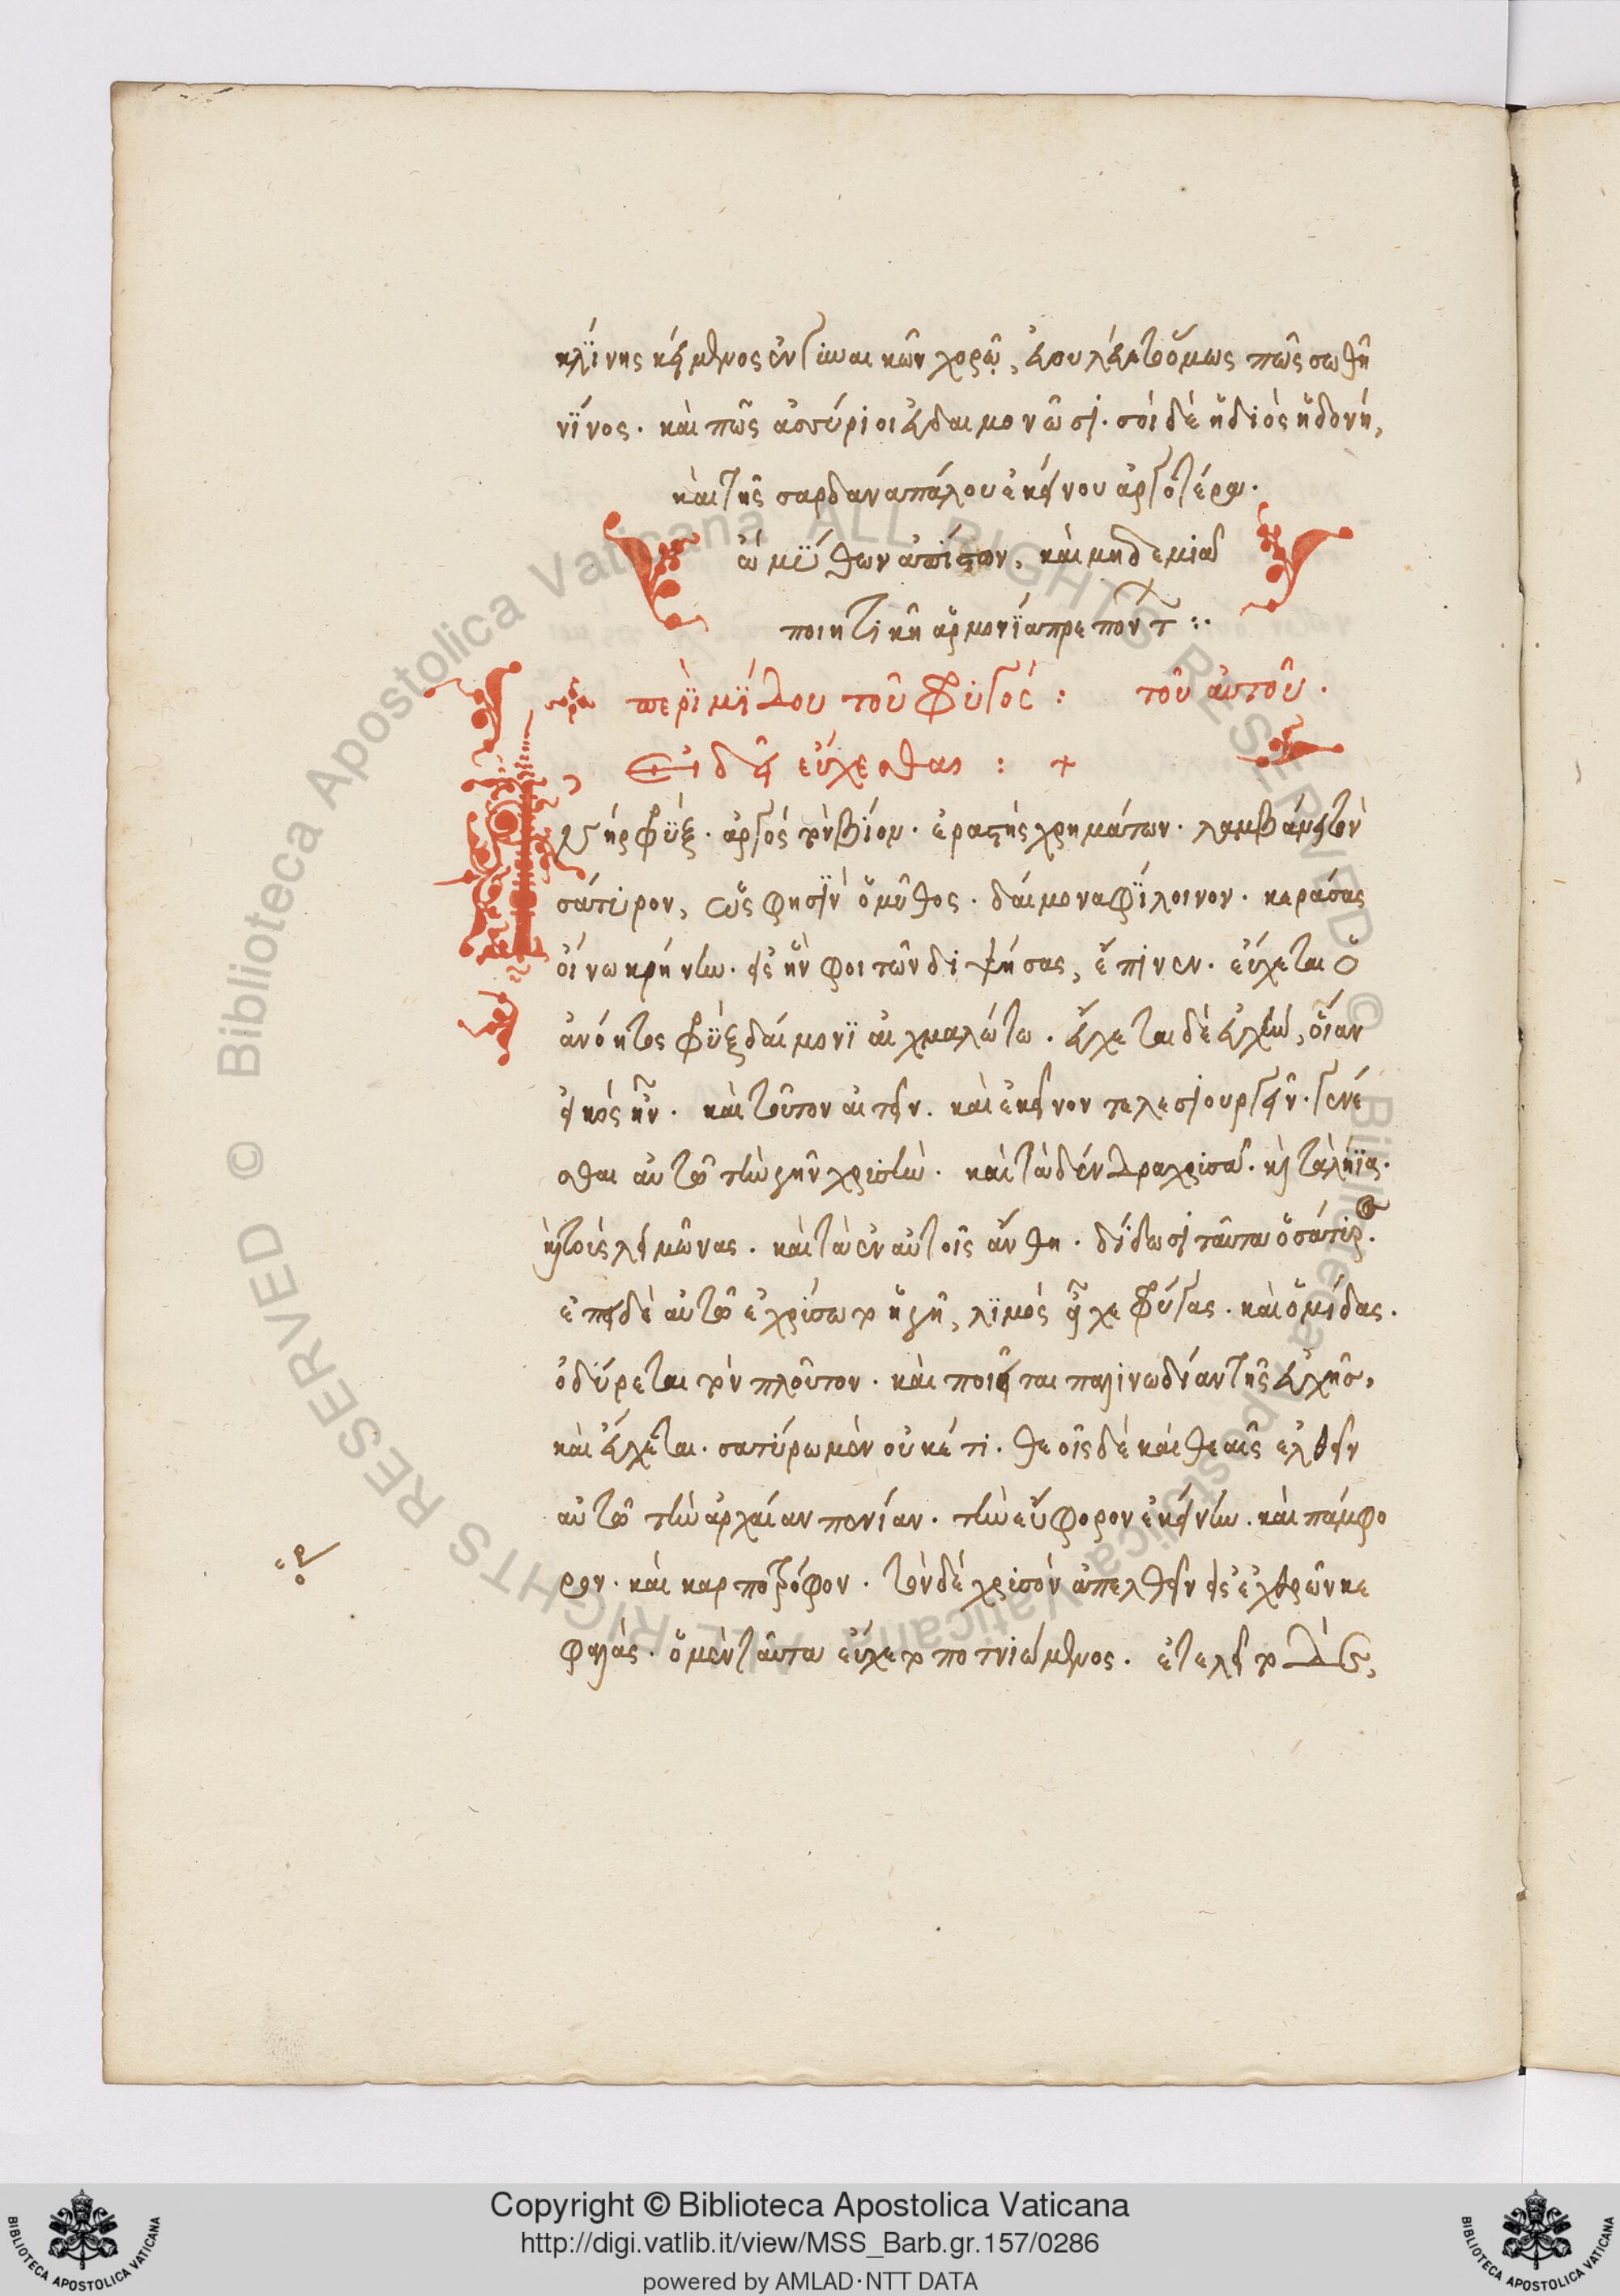 κλΐνης κείμενος ἐν γυναικῶν χορῷ, ἐβουλεύετο ὅμως πῶς σωθῆ
νΐνος. καὶ πῶς ἀσύριοι εὐδαιμονῶσι. σοὶ δὲ ἡδιὸς ἡδονή,
καὶ τῆς σαρδαναπάλου ἐκείνου ἀργοτέρα.
ὢ μΰθων ἀπίστων, καὶ μηδεμιᾶ
ποιητικῆ ἁρμονΐα πρεπόντων :·
περὶ μΐδου τοῦ Φρυγός : τοῦ αὐτοῦ.
Εἰ δεῖ εὔχεσθαι : +
Ἀνὴρ φρὺξ. ἀργός τὸν βίον. ἐραστής χρημάτων. λαμβάνει τὸν
σάτυρον, ὥς φησὶν ὁ μῦθος. δαίμονα φΐλοινον. κεράσας
οἴνω κρήνην. εἰς ἣν φοιτῶν διψήσας, ἔπινεν. εὔχεται ὁ
ἀνόητος φρὺξ δαίμονϊ αἰχμαλώτω. εὔχεται δὲ εὐχὴν, οἵαν
εἰκός ἦν. καὶ τοῦτον αἰτεῖν. καὶ ἐκεῖνον τελεσιουργεῖν. γενέ
σθαι αὐτῶ τὴν γῆν χρυσῆν. καὶ τὰ δένδρα χρυσᾶ. καὶ τὰ λήϊα.
καὶ τοὺς λειμῶνας. καὶ τὰ ἐν αὐτοῖς ἄνθη. δίδωσι ταῦτα ὁ σάτυρος.
ἐπεὶ δὲ αὐτῶ ἐχρύσωτο ἡ γῆ, λϊμὸς εἶχε Φρύγας. καὶ ὁ μίδας.
ὀδύρεται τὸν πλοῦτον. καὶ ποιεῖται παλινωδίαν τῆς εὐχῆς,
καὶ εὔχεται. σατύρω μὲν οὐκέτι. θεοῖς δὲ καὶ θεαῖς ἐλθεῖν
αὐτῶ τὴν ἀρχαίαν πενίαν. τὴν εὔφορον ἐκείνην. καὶ πάμφο
ρον. καὶ καρποτρόφον. τὸν δὲ χρυσὸν ἀπελθεῖν εἰς ἐχθρῶν κε
φαλὰς. ὁ μὲν ταῦτα εὔχετο ποτνιώμενος. ἐτελεῖτο